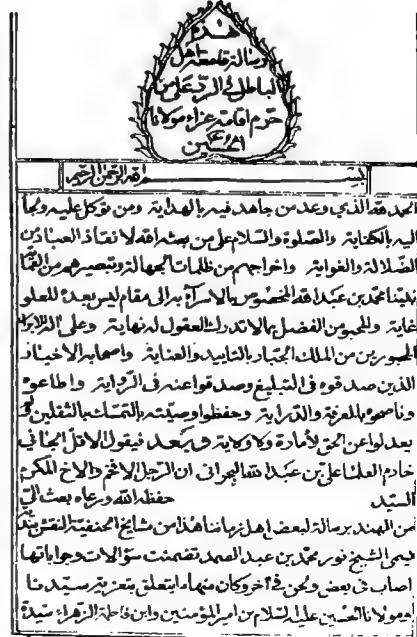 هذه
رسالة قامعة اهل
الباطل في الرد على من
حرم اقامة عزاء مولانا
الحسين
بسم الله الرحمن الرحيم
الحمد لله الذي وعد من جاهد فيه بالهداية ومن توكل عليه ولجأ
اليه بالكفاية والصلوة والسلام على من بعثه الله لانقاذ العباد من
الضلالة والغواية واخراجهم من ظلمات الجهالة وتبصيرهم من
نبينا محمد بن عبد الله المخصوص بالاسراء به الى مقام ليس بعده للعلو
غاية والمحبو من الفضل بما لا تدرك العقول له نهاية وعلى
المحبورين من الملك الجبار بالتاييد والعناية واصحابه الاخيار
الذين صدقوه في التبليغ وصدقوا عنه في الرواية واطاعوه
وناصحوه بالمعرفة والدراية وحفظوا وصيته بالتمسك بالثقلين
يعدلوا عن الحق لأمارة ولا ولاية وبعد فيقول الاقل الجاني
خادم العلماء علي بن عبد الله البحراني ان الرجل الافخم والاخ المكرم
السيد حفظه الله ورعاه بعث الي
من الهند برسالة لبعض اهل زماننا هذا من مشايخ الحنفية النقشبندية
يسمى الشيخ نور محمد بن عبد الصمد تضمنت سؤالات وجواباتها
اصاب في بعض ولحن في آخر وكان منها ما يتعلق بتعزية سيدنا
ومولانا الحسين عليه السلام بن امير المؤمنين وابن فاطمة الزهراء سيدة